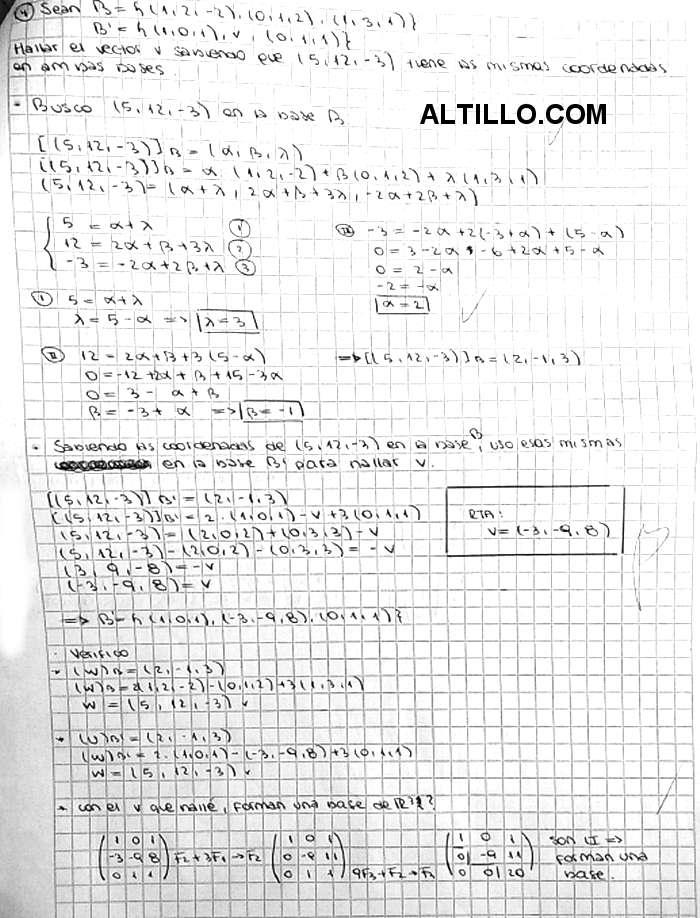 ④ Sean B = {(1,2,-2), (0,1,2), (1,3,1)}
B' = {(1,0,1), v, (0,1,1)}
Hallar el vector v sabiendo que (5,12,-3) tiene las mismas coordenadas
en ambas bases.
• Busco (5,12,-3) en la base B
ALTILLO.COM
[(5,12,-3)]B = (α, β, λ)
[(5,12,-3)]B = α (1,2,-2) + β(0,1,2) + λ(1,3,1)
(5,12,-3) = (α+λ, 2α+β+3λ, -2α+2β+λ)
5 = α+λ ①
12 = 2α+β+3λ ②
-3 = -2α+2β+λ ③
① 5 = α+λ
λ = 5-α => λ=3
Ⅱ 12 = 2α+β+3(5-α)
0 = -12+2α+β+15-3α
0 = 3 - α + β
β = -3 + α => β=-1
Ⅲ -3 = -2α+2(-3+α)+(5-α)
0 = 3-2α-6+2α+5-α
0 = 2-α
-2 = -α
α=2
=> [(5,12,-3)]B = (2,-1,3)
• Sabiendo las coordenadas de (5,12,-3) en la base B, uso esas mismas
en la base B' para hallar v.
[(5,12,-3)]B' = (2,-1,3)
[(5,12,-3)]B' = 2.(1,0,1)-v+3(0,1,1)
(5,12,-3) = (2,0,2)+(0,3,3)-v
(5,12,-3)-(2,0,2)-(0,3,3) = -v
(3,9,-8) = -v
(-3,-9,8) = v
RTA:
v=(-3,-9,8)
=> B' = {(1,0,1), (-3,-9,8), (0,1,1)}
• Verifico
* (w)B = (2,-1,3)
(w)B = 2(1,2,-2)-(0,1,2)+3(1,3,1)
w = (5,12,-3) ✓
* (w)B' = (2,-1,3)
(w)B' = 2.(1,0,1)-(-3,-9,8)+3(0,1,1)
w = (5,12,-3) ✓
* con el v que hallé, forman una base de R³?
(1 0 1
-3 -9 8
0 1 1) F2+3F1→F2
(1 0 1
0 -9 11
0 1 1) 9F3+F2→F3
(1 0 1
0 -9 11
0 0 20)
son LI =>
forman una
base.